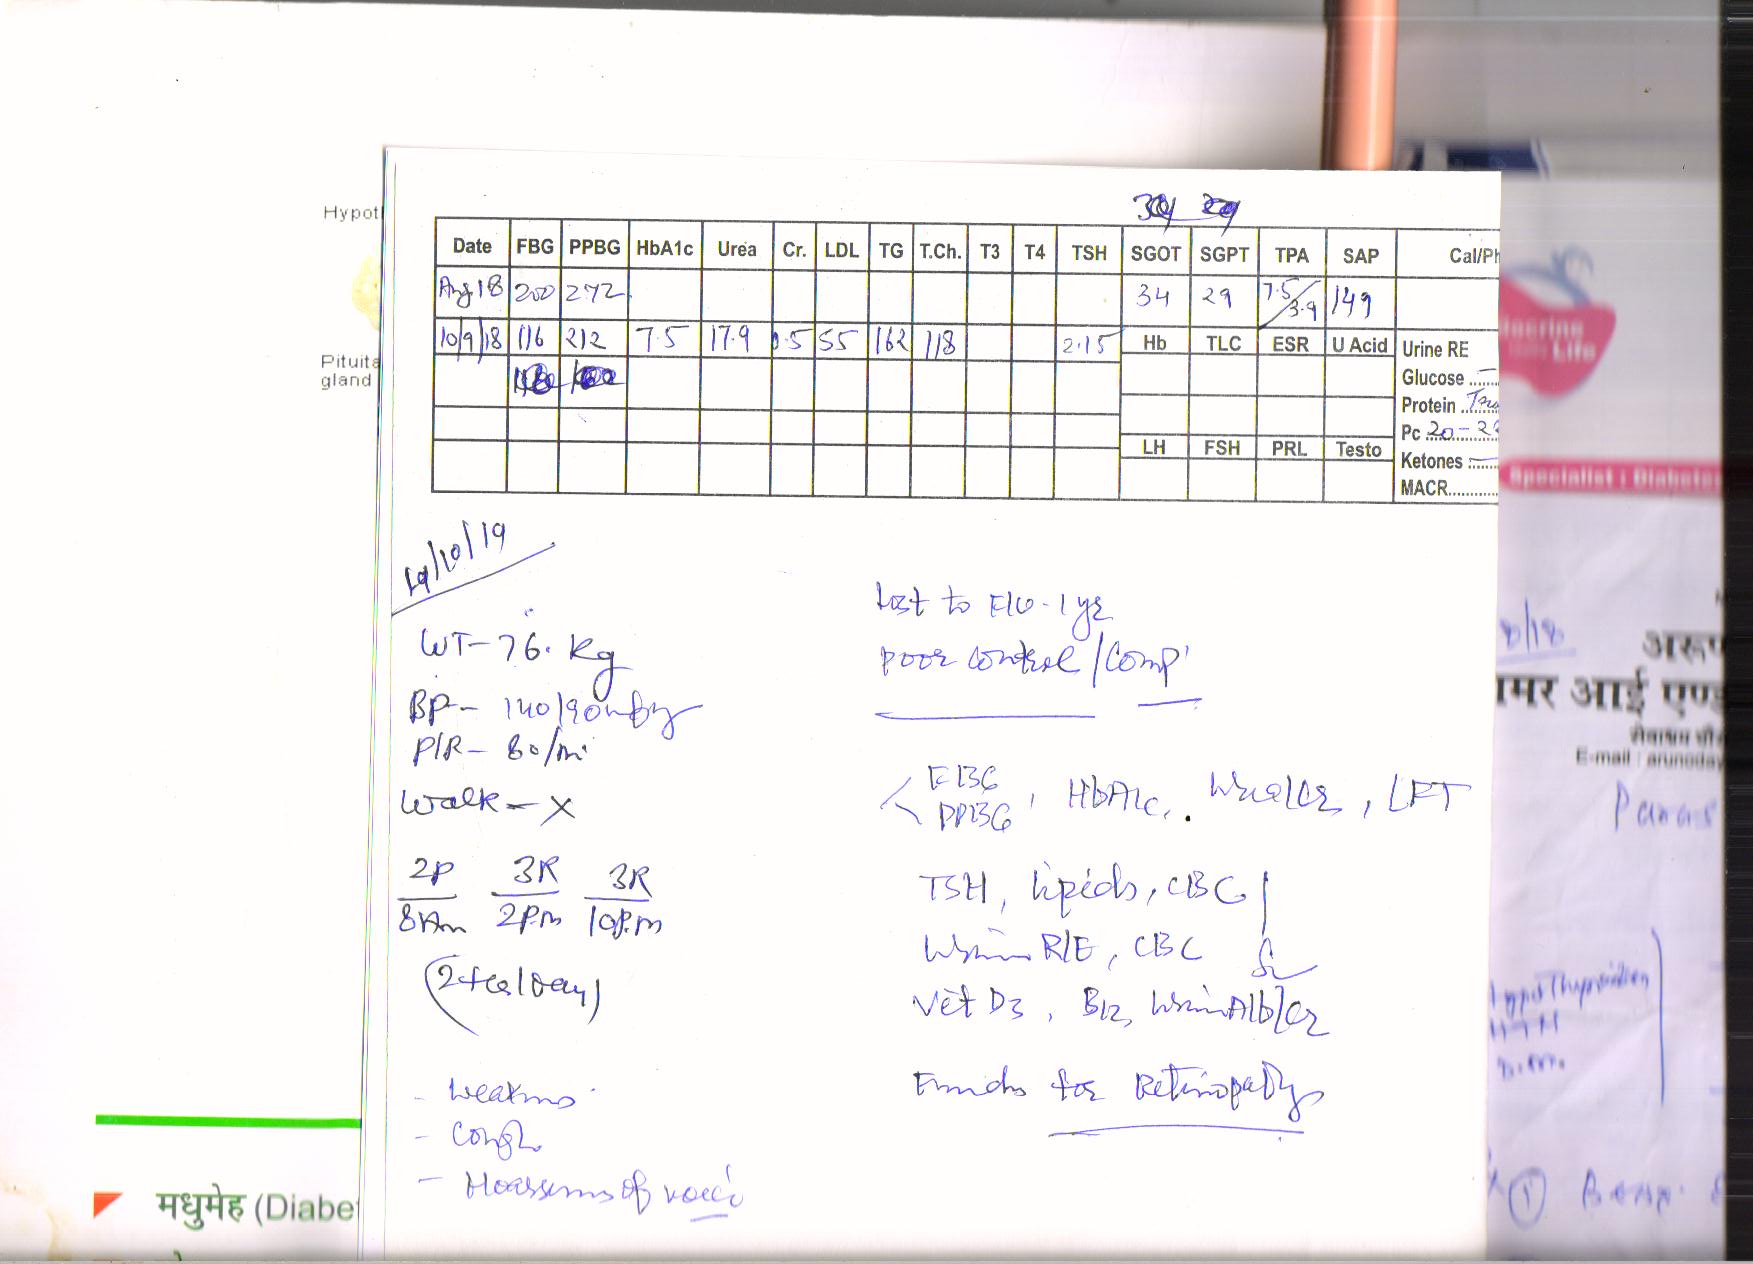 Hypot
Date FBG PPBG HbA1c Urea Cr. LDL TG T.Ch. T3 T4 TSH SGOT SGPT TPA SAP Cal/Ph
Aug 18 200 272 34 29 7.5/3.9 149
10/9/18 116 212 7.5 17.9 0.5 55 162 118 2.15
Hb TLC ESR U Acid Urine RE
Pituita
gland
Glucose
Protein
Pc 20-2
LH FSH PRL Testo
Ketones
MACR
Specialist : Diabetes
/10/19
WT- 76. Kg
BP- 140/90
P/R- 80/mi
Walk - X
2P 3R 3R
8Am 2P.m 10P.m
- Cough
- Hoarseness of voice
Lost to F/U - 1 yr
Poor control / Comp
FBG
PPBG, HbA1c, Urea/Cr, LFT
TSH, Lipids, CBC
Urine R/E, CBC
Vit D3, B12, Urine Alb/Cr
Fundus for Retinopathy
8/18
अरू
मर आई एण्ड
E-mail : arunoday
Paras
HTN
D.M.
मधुमेह (Diabe